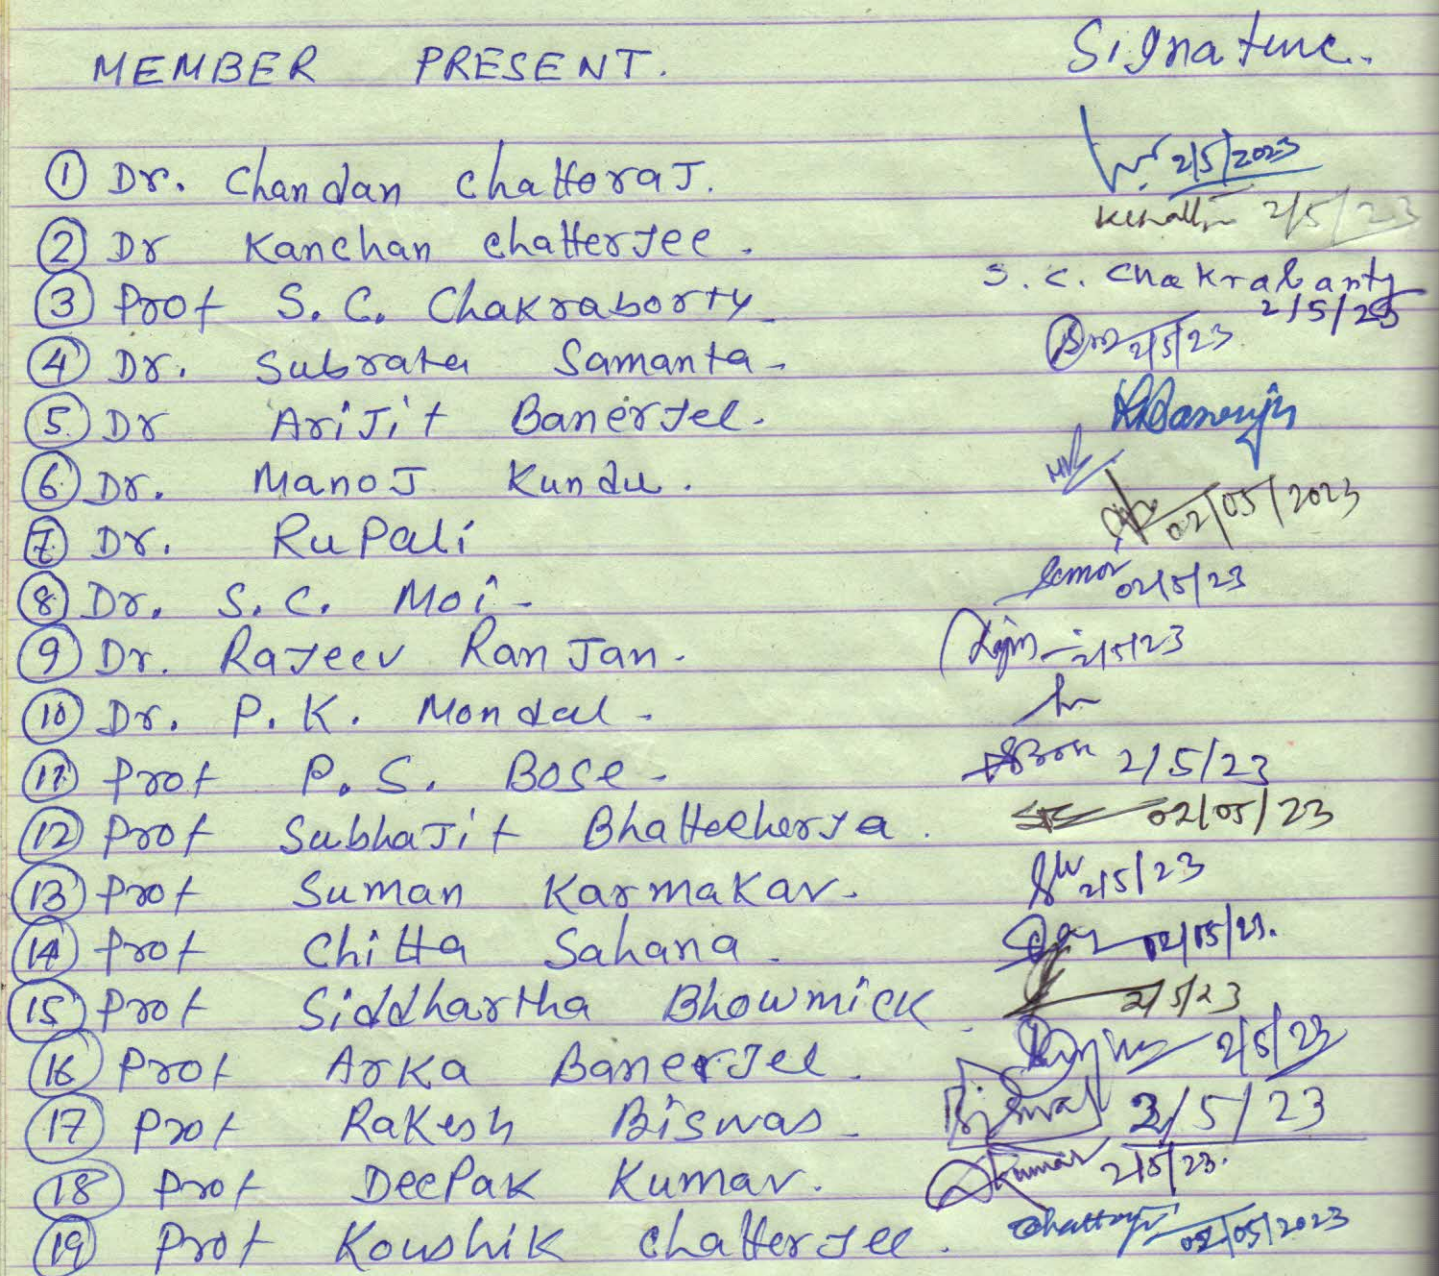 MEMBER PRESENT. Signature.
① Dr. Chandan Chattoraj. 2/5/2023
② Dr Kanchan Chatterjee. 2/5/23
③ Prof S. C. Chakraborty S. C. Chakrabarty 2/5/23
④ Dr. Subrata Samanta 2/5/23
⑤ Dr Arijit Banerjee. Banerjee
⑥ Dr. Manoj Kundu. MK
⑦ Dr. Rupali 02/05/2023
⑧ Dr. S. C. Moi 02/5/23
⑨ Dr. Rajeev Ranjan. 2/5/23
⑩ Dr. P. K. Mondal
⑪ Prof P. S. Bose 2/5/23
⑫ Prof Subhajit Bhattacherja. 02/05/23
⑬ Prof Suman Karmakar. 2/5/23
⑭ Prof Chitta Sahana. 02/05/23.
⑮ Prof Siddhartha Bhowmick. 2/5/23
⑯ Prof Arka Banerjee. 2/5/23
⑰ Prof Rakesh Biswas Biswas 2/5/23
⑱ Prof Deepak Kumar. Dkumar 2/5/23.
⑲ Prof Koushik Chatterjee. 02/05/2023